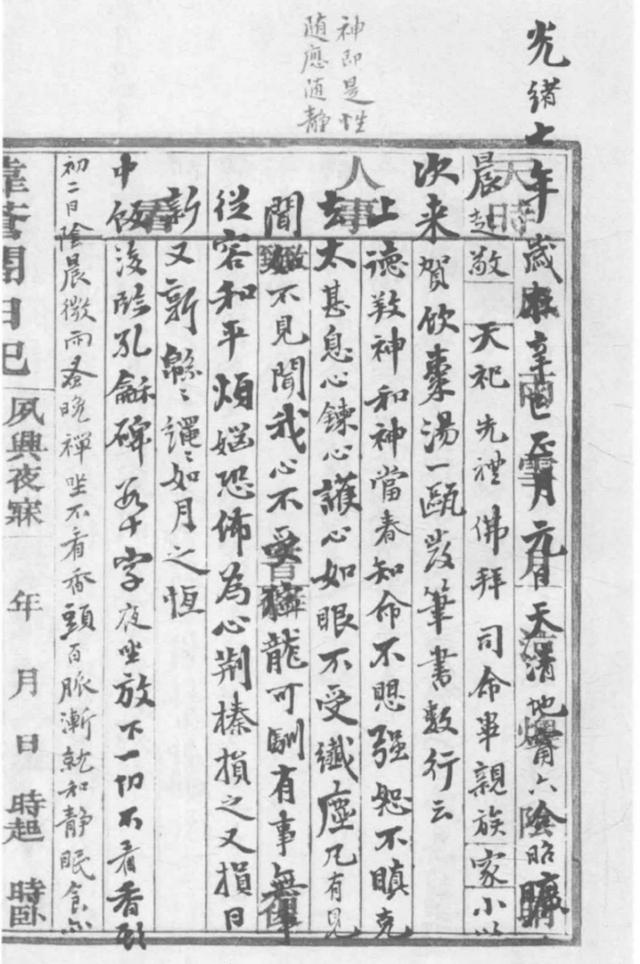 神即是性
随應随静
光緒七年歲在辛巳正月元日天清地甯六陰昭曠
晨起敬天祀先禮佛拜司命畢親族家小以
次来賀飲棗湯一甌發筆書数行云
上德敎神和神當春知命不思强恕不瞋克
去太甚息心鍊心護心如眼不受纖塵凡有見
聞如不見聞我心不受獰龍可馴有事無事
從容和平煩惱恐怖為心荆榛損之又損日
新又新緜緜繩繩如月之恆
中飯後臨孔龢碑若干字夜坐放下一切不看香頭
初二日陰晨微雨蚤晚禪坐不看香頭百脈漸就和静眠食
夙興夜寐 年 月 日 時起 時卧